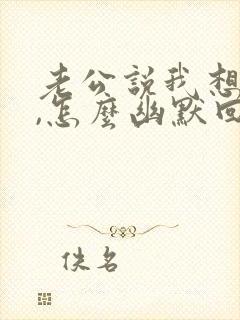 老公說我想
,怎麼幽默回
佚名